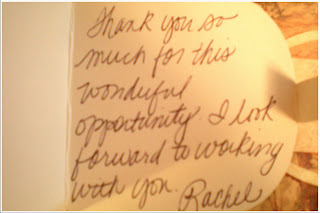 Thank you so
much for this
wonderful
opportunity. I look
forward to working
with you. Rachel